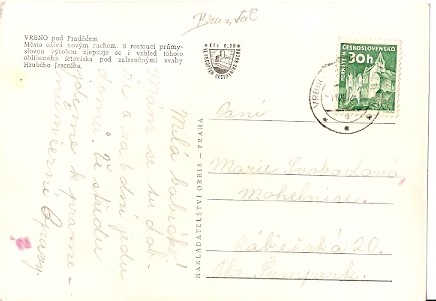 Bruntál
VRBNO pod Pradědem
Město ožívá novým ruchem. S rostoucí průmy-
slovou výrobou zlepšuje se i vzhled tohoto
oblíbeného letoviska pod zalesněnými svahy
Hrubého Jeseníka.
Milá babičko!
se tu dob-
a za 6 dní jedu
domů. Ve středu
jdeme k prame-
NAKLADATELSTVÍ ORBIS - PRAHA
ČESKOSLOVENSKO
30h
VRBNO
Paní
Marie Svobodová
Mohelnice
Zábřežská 20.
Okr. Šumperk